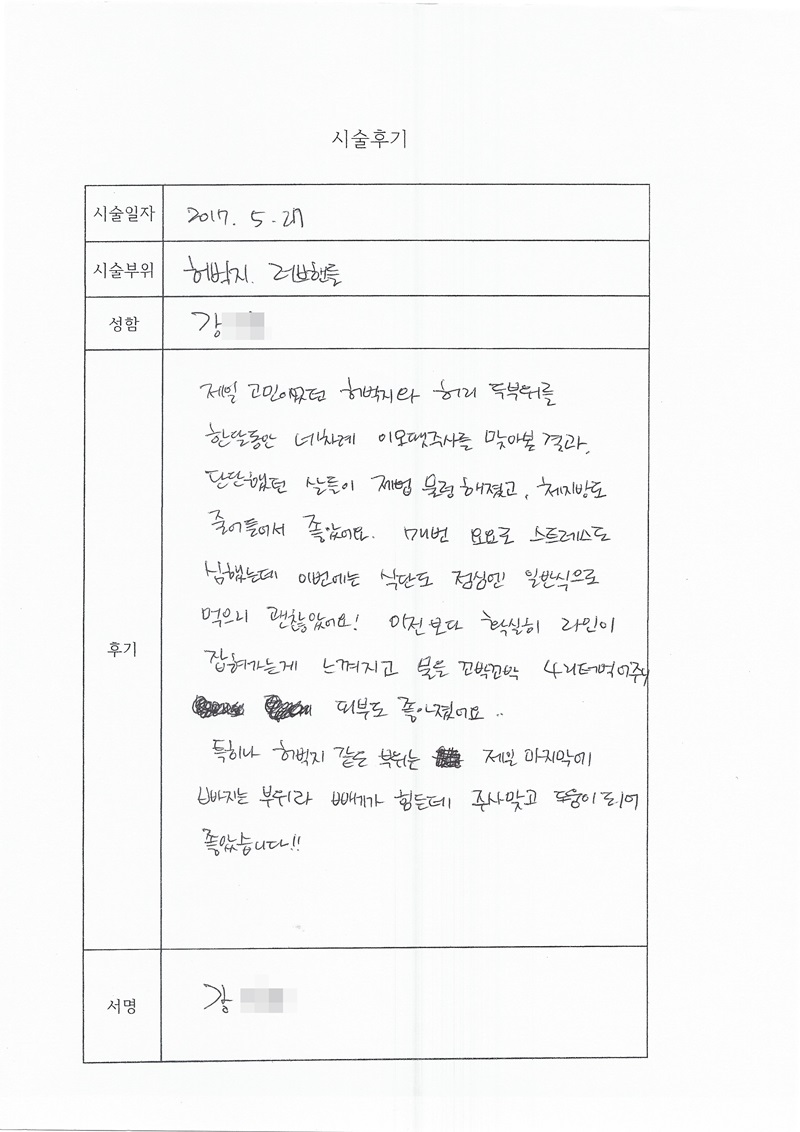 시술후기
시술일자 2017. 5. 27
시술부위 허벅지. 러브핸들
성함 강
제일 고민이었던 허벅지와 허리 두부위를
한달동안 네차례 주사를 맞아본 결과,
단단했던 살들이 제법 물렁해졌고, 체지방도
줄어들어서 좋았어요. 매번 요요로 스트레스도
심했는데 이번에는 식단도 점심엔 일반식으로
먹으니 괜찮았어요! 이전보다 확실히 라인이
잡혀가는게 느껴지고 물을 꼬박꼬박 4리터먹어주니
피부도 좋아졌어요..
특히나 허벅지 같은 부위는 제일 마지막에
후기
빠지는 부위라 빼기가 힘든데 주사맞고 도움이 되어
좋았습니다!!
서명 강